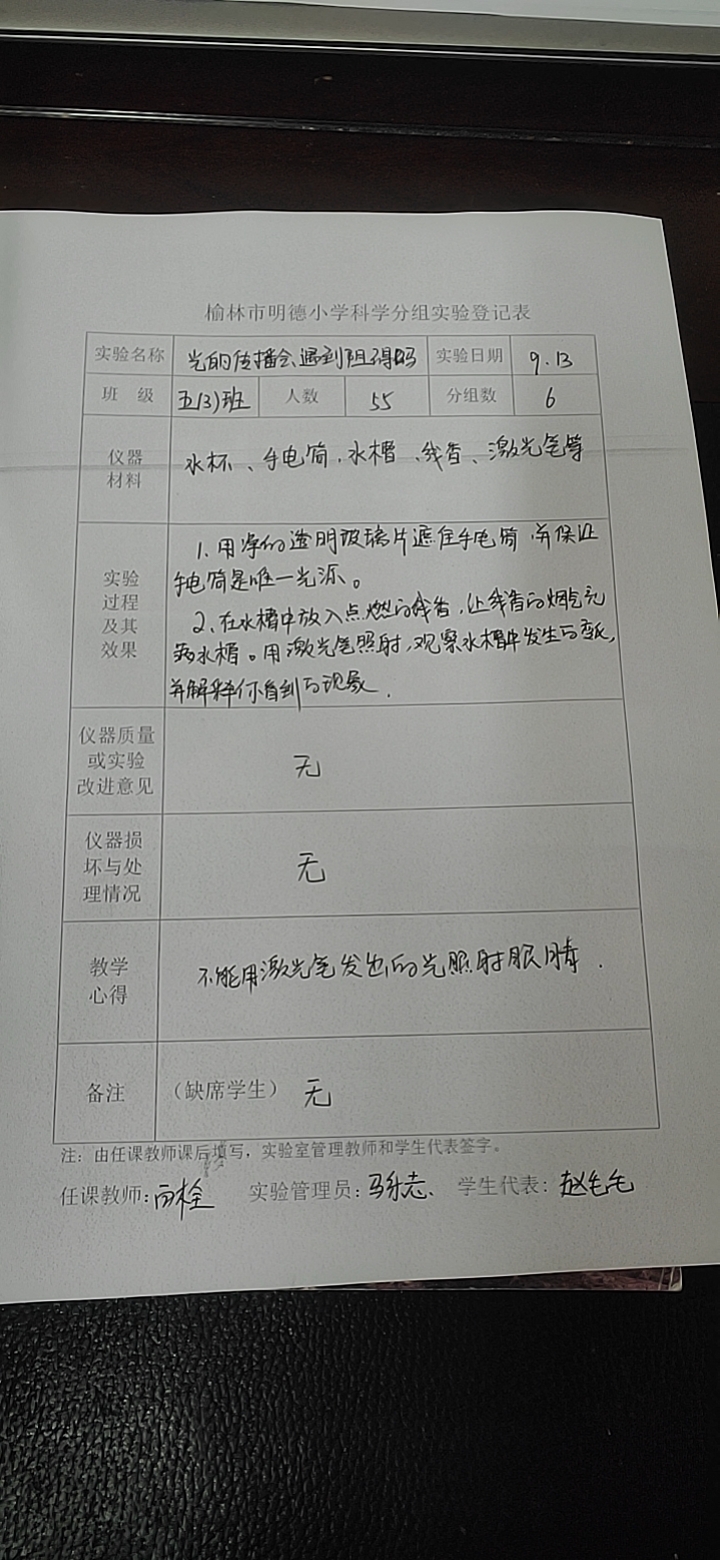 榆林市明德小学科学分组实验登记表
实验名称 光的传播会遇到阻碍吗 实验日期 9.13
班 级 五(3)班 人数 55 分组数 6
仪器材料 水杯、手电筒、水槽、线香、激光笔等
实验过程及其效果
1、用净的透明玻璃片遮住手电筒,并保证
手电筒是唯一光源。
2、在水槽中放入点燃的线香,让线香的烟充
满水槽。用激光笔照射,观察水槽中发生的变化,
并解释你看到的现象.
仪器质量或实验改进意见 无
仪器损坏与处理情况 无
教学心得 不能用激光笔发出的光照射眼睛.
备注 (缺席学生) 无
注:由任课教师课后填写,实验室管理教师和学生代表签字。
任课教师: 实验管理员: 学生代表:赵毛毛